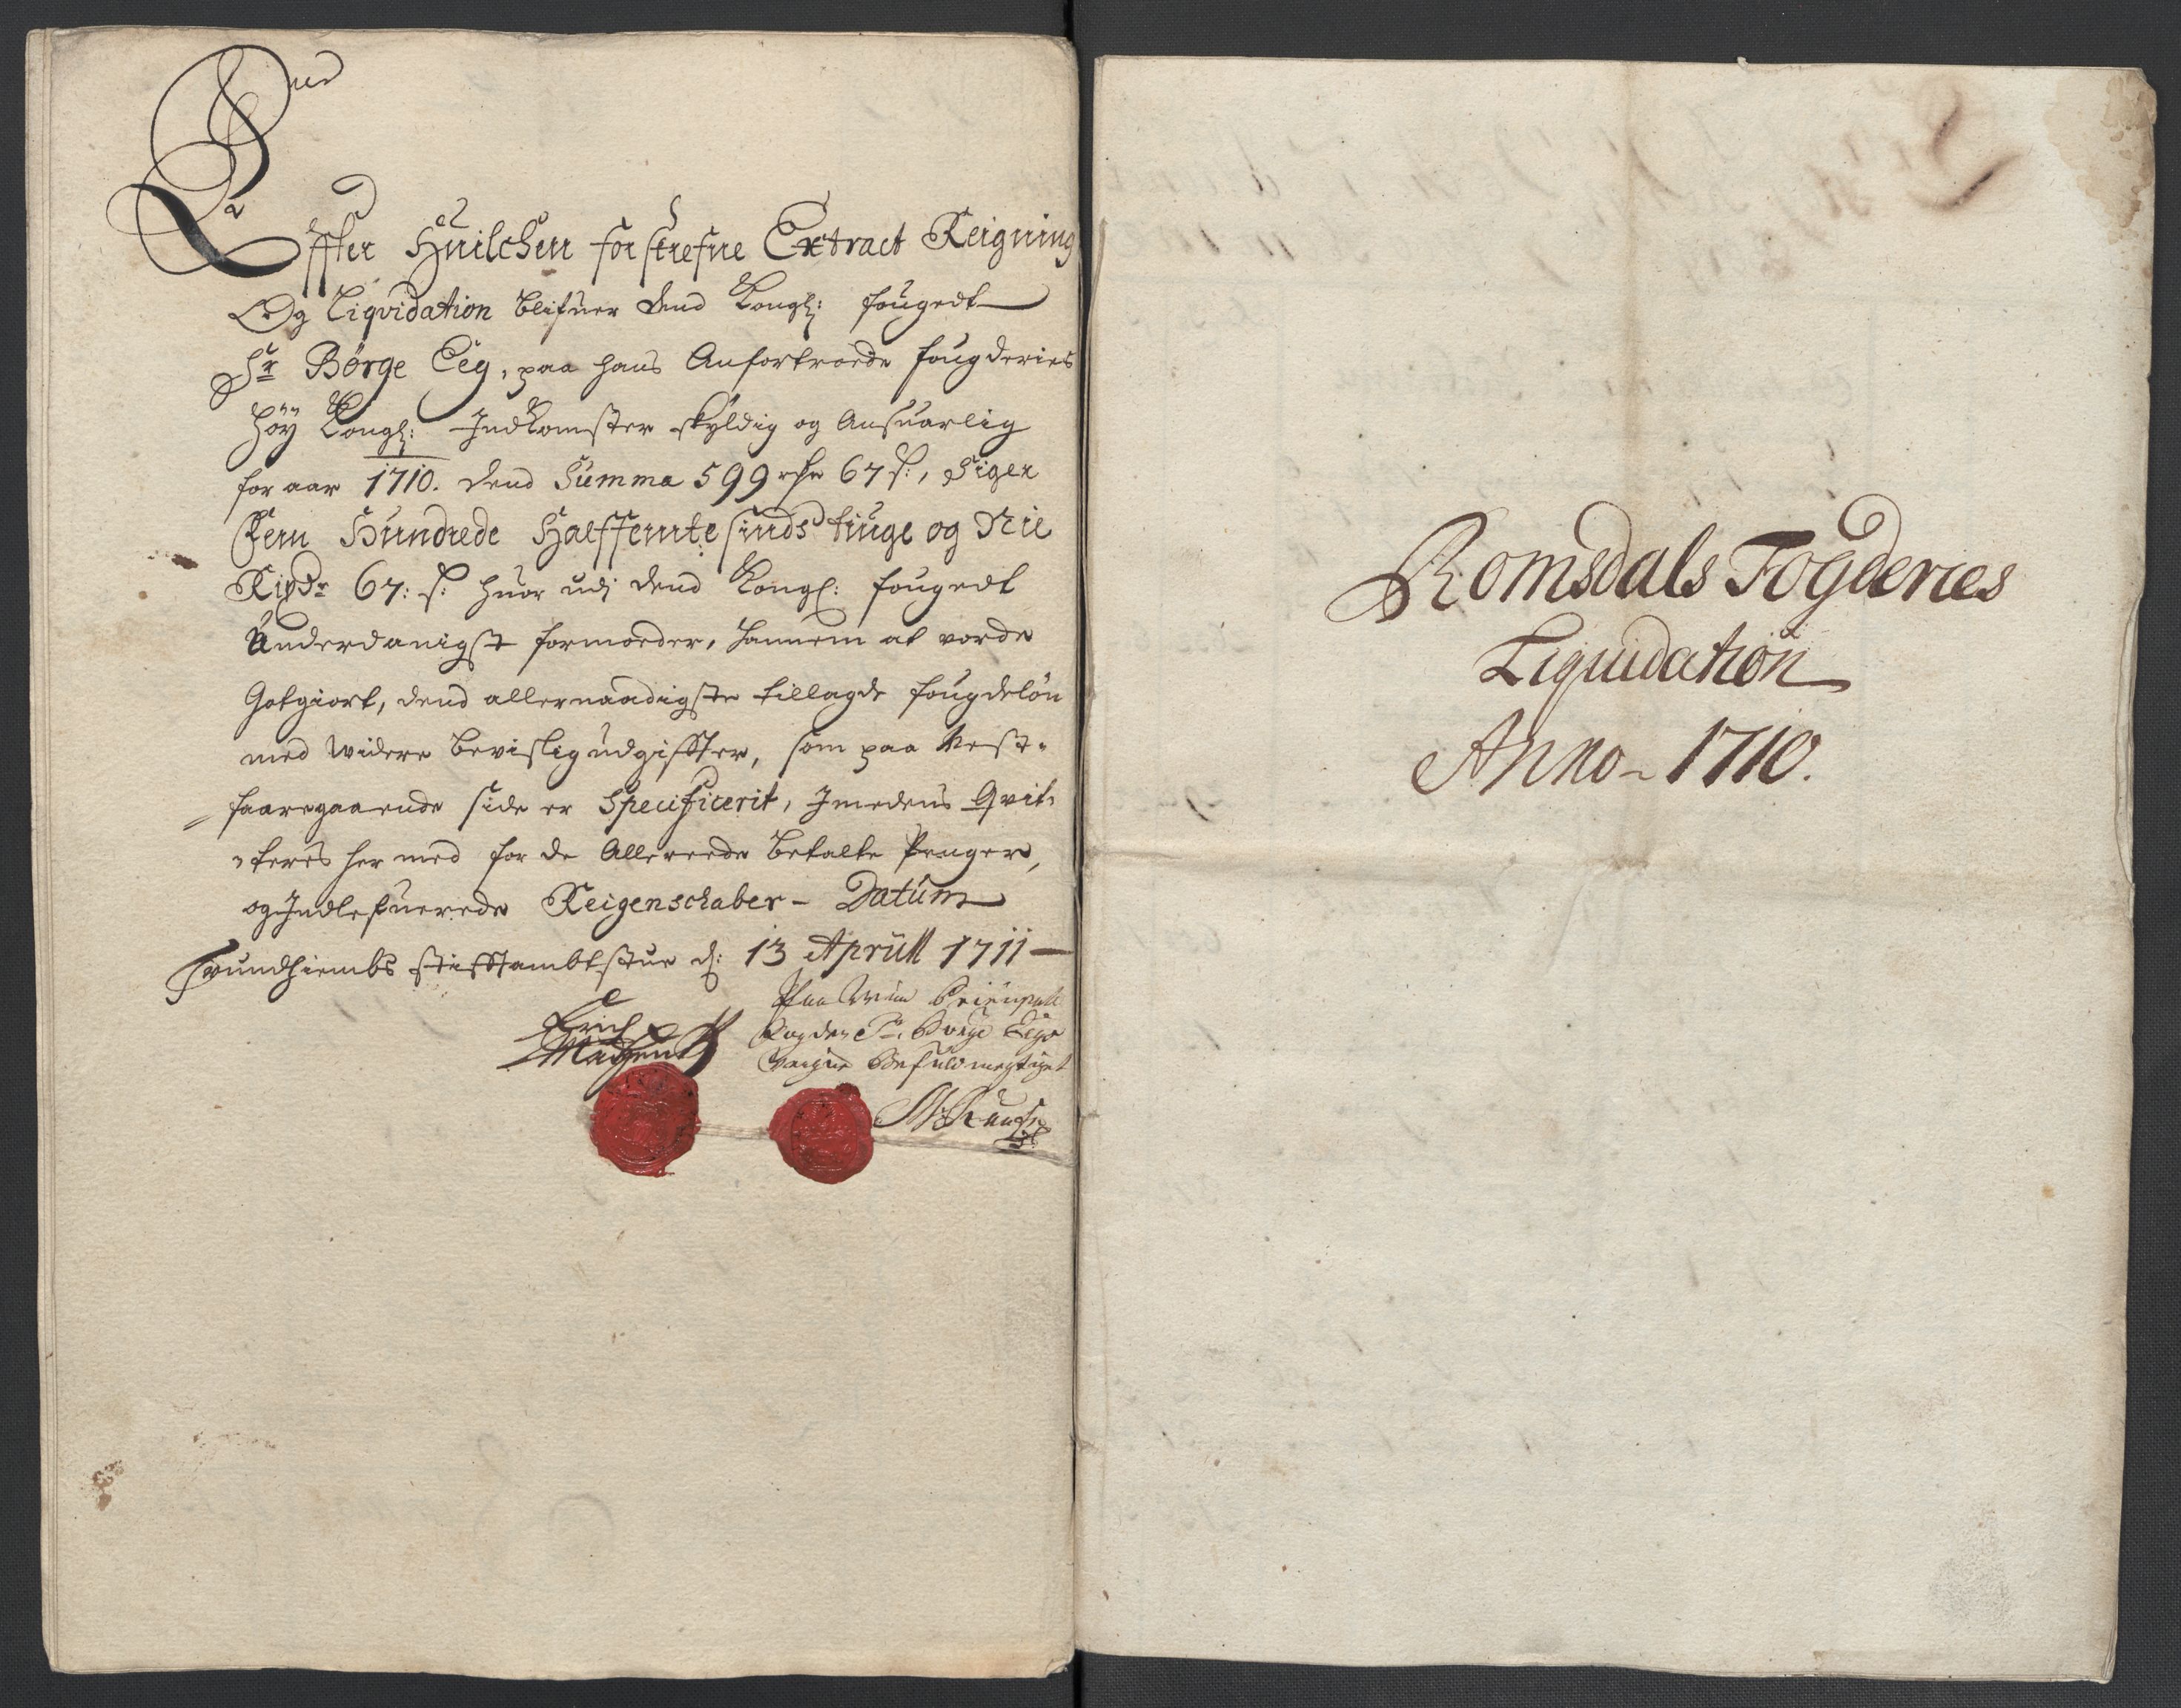 Effter Huilchen forschrefne Extract Reigning
Og Liqvidation blifuer dend Kongl: fougedt
Sr Børge Eeg, paa hans Anfortroede fougderies
Höy Kongl: Indkomster skyldig og Ansuarlig
for aar 1710. dend Summa 599 rdr 67 s:, Siger
Fem Hundrede Halffemtesinds tiuge og Nie
Rixdr 67: s: huor udj dend Kongl: fougedt
Underdanigst formoeder, hannem at vorde
Gotgiort, dend allernaadigste tillagde fougdelön
med widere bevislig udgiffter, som paa nest-
faaregaaende side er Specificerit, Imedens Qvit-
teres her med for de Allereede betalte Penger,
og Indlefuerede Reigenschaber - Datum
Trundhiembs stifftambtstue d: 13 Aprill 1711
Paa Min Principall
Erich
Fogden Sr. Børge Eegs
Madsen
Weigne Befuldmegtiget
Romsdals Fogderies
Liquidation
Anno - 1710.